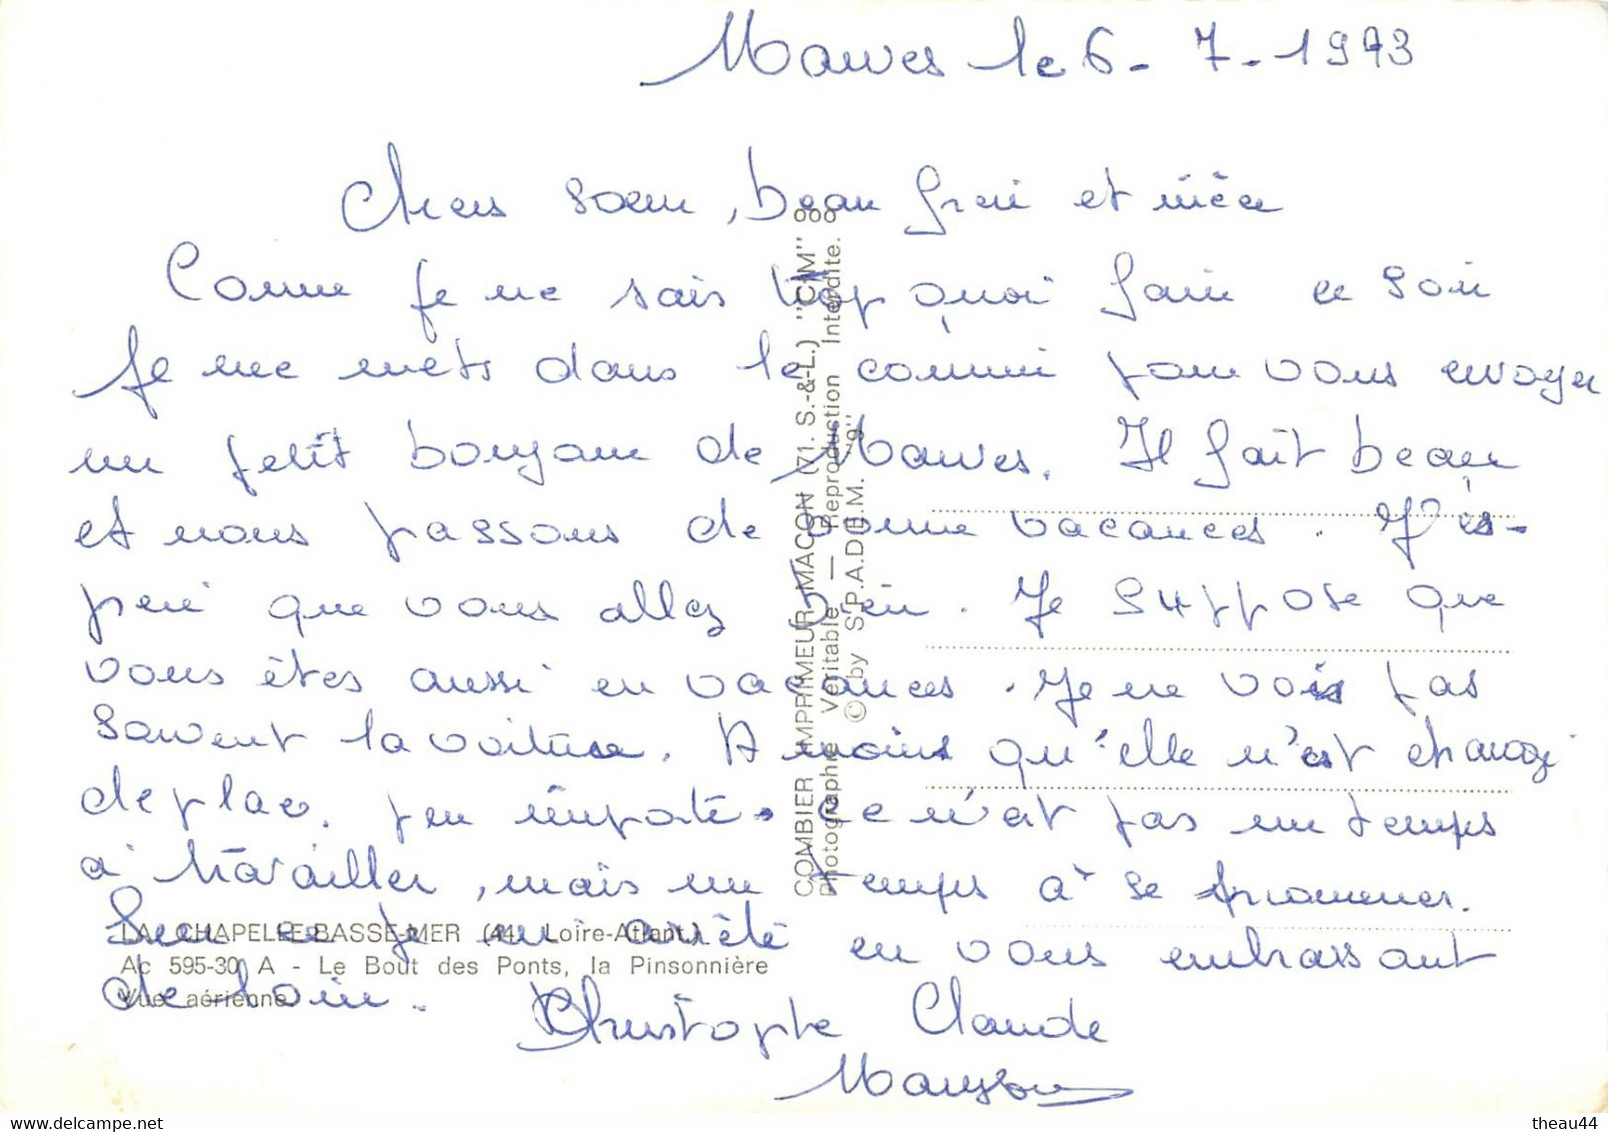 Mauves le 6 - 7 - 1973
Chers soeur, beau frère et nièce
Comme je ne sais trop quoi faire ce soir
Je me mets dans le commun pour vous envoyer
un petit bonjour de Mauves. Il fait beau
et nous passons de bonne vacances. J'es-
père que vous allez bien. Je suppose que
vous êtes aussi en vacances. Je ne vois pas
souvent la voiture. A moins qu'elle n'est changé
de place. peu importe. ce n'est pas un temps
à travailler, mais un temps à se promener.
Sur ce je m'arrête en vous embrassant
de loin. Christophe Claude
LA CHAPELLE-BASSE-MER (44. Loire-Atlant.)
Ac 595-30 A - Le Bout des Ponts, la Pinsonnière
Vue aérienne
COMBIER IMPRIMEUR MACON (71. S.-&-L.) "CIM"
Photographie Véritable — Reproduction Interdite.
© by S.P.A.D.E.M. "9"
theau44